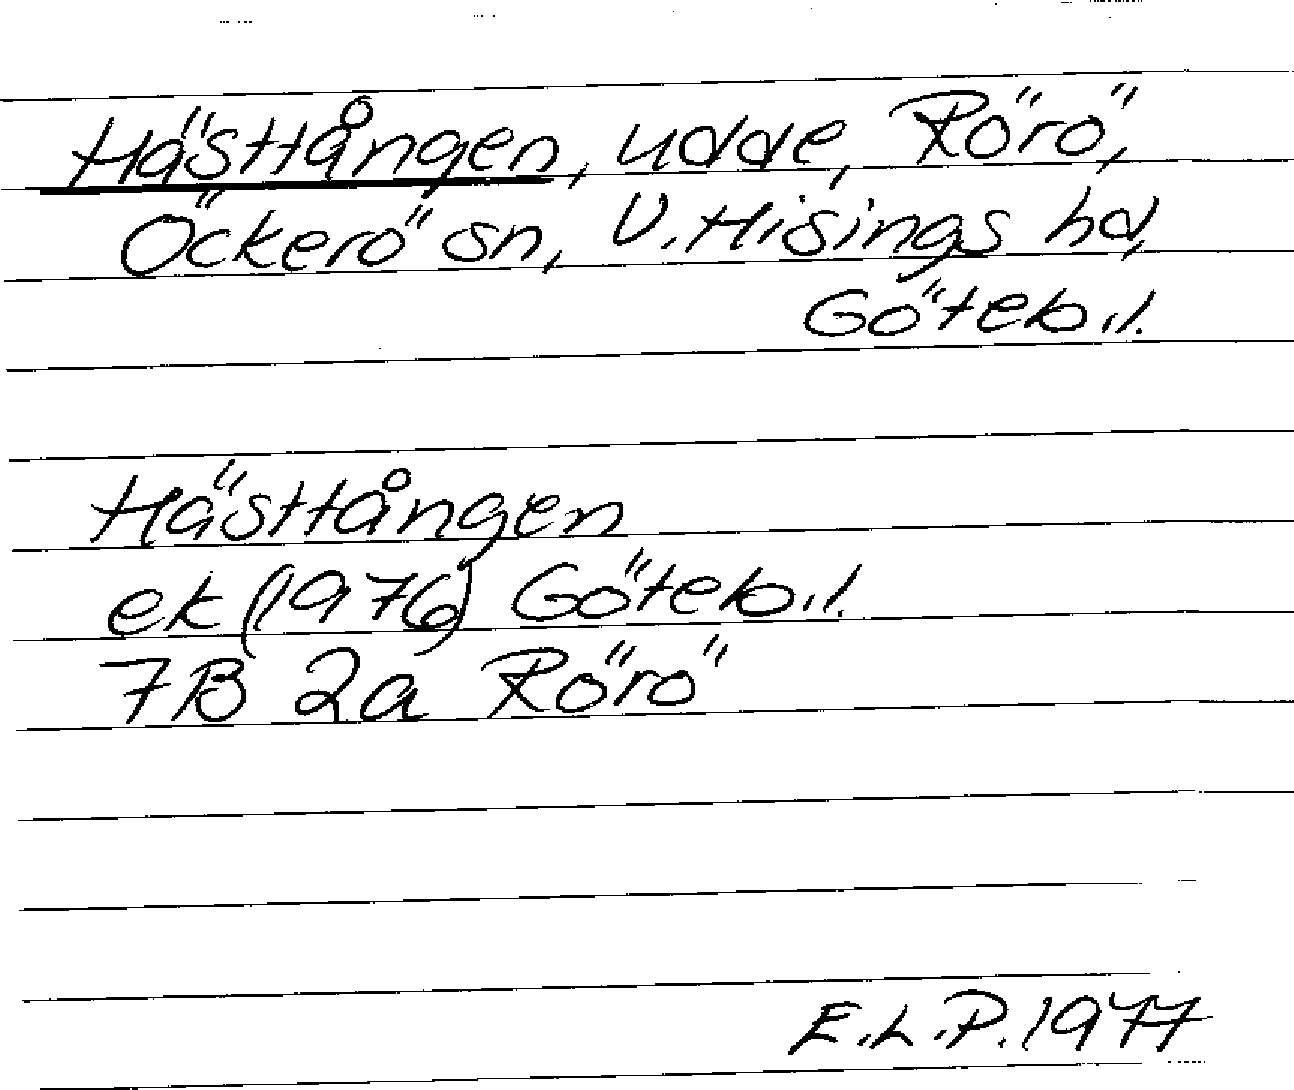 Hästtången, udde, Rörö,
Öckerö sn, V. Hisings hd,
Göteb.l.
Hästtången
ek (1976) Göteb.l.
7B 2a Rörö
E.L.P. 1977